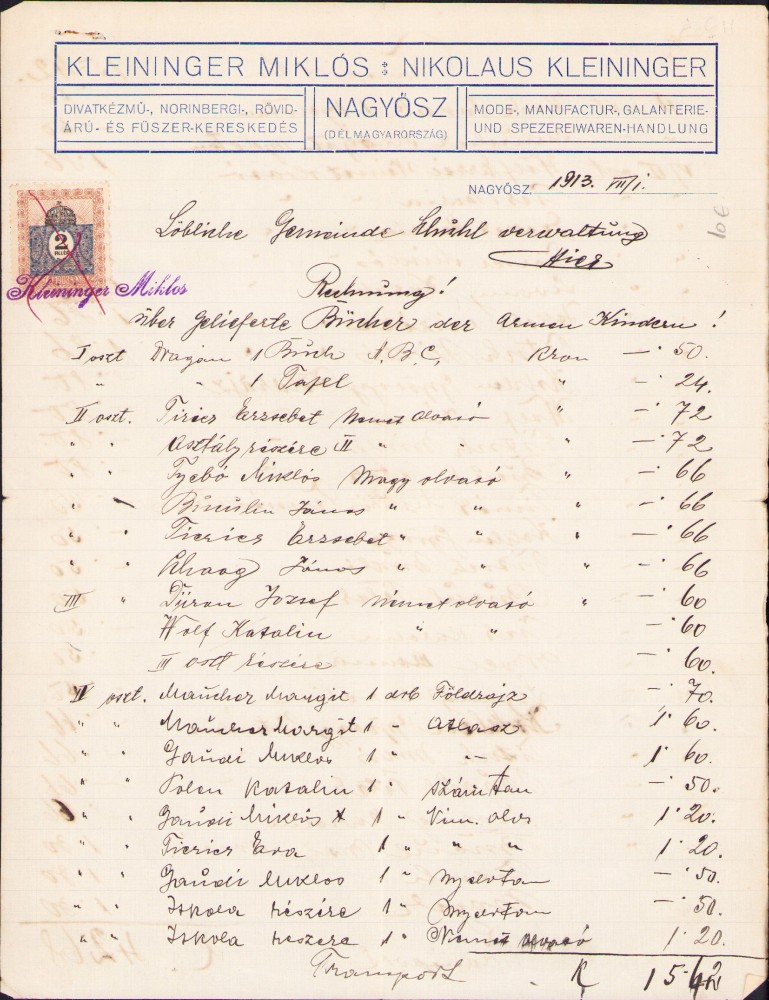 KLEININGER MIKLÓS : NIKOLAUS KLEININGER
DIVATKÉZMŰ-, NORINBERGI-, RÖVID-
ÁRÚ- ÉS FŰSZER-KERESKEDÉS
NAGYŐSZ
(DÉLMAGYARORSZÁG)
MODE-, MANUFACTUR-, GALANTERIE-
UND SPEZEREIWAREN-HANDLUNG
NAGYŐSZ, 1913. VII/1.
2
FILLÉR
Löbliche Gemeinde Schuhl verwaltung
Hier
Kleininger Miklós
Rechnung!
über Gelieferte Bücher der Armen Kindern!
I oszt Dragan 1 Buch A.B.C. Kron —· 50.
" " 1 Tafel " —· 24.
II oszt. Tirier Erzsebet Nemet olvasó " —· 72
" " Osztály részére II " " " —· 72
" " Miklós Magy olvasó " —· 66
" " János " " " —· 66
" " Tierier Erzsebet " " " —· 66
" " János " " " —· 66
III " József Német olvasó " —· 60
Wolf Katalin " " —· 60
III oszt részére —· 60.
IV oszt. Maucher Margit 1 drb Földrajz —· 70.
" " Maucher Margit 1 " Atlasz 1· 60.
" " Gaudi Miklos 1 " " 1· 60.
" " Katalin 1 " Számtan —· 50.
" " Gaudi Miklós 1 " Ném. olvs 1· 20.
" " Tierier Eva 1 " " " 1· 20.
" " Gaudi Miklos 1 " Nyelvtan —· 50.
" " Iskola részére 1 " Nyelvtan —· 50.
" " Iskola részere 1 " Német olvasó 1· 20.
Transport K 15·42